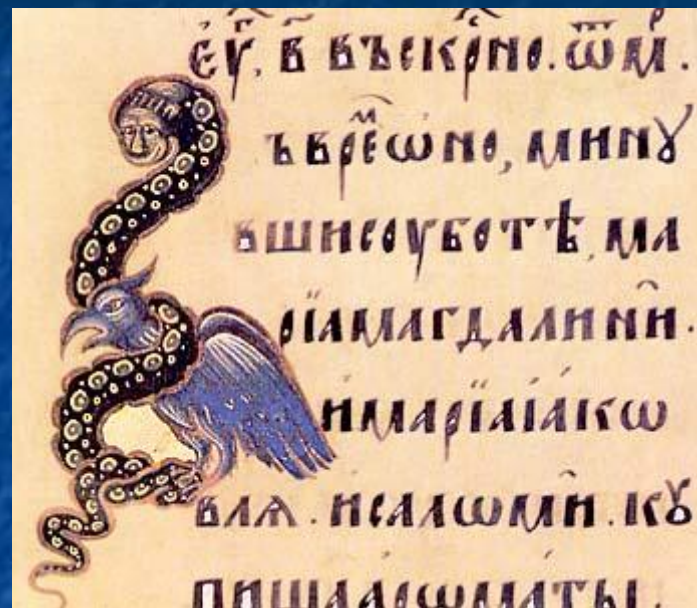 еѵ҃, в҃ въскр҇но. ѿ мр҇.
Ъ врем҇ѡно, минꙋ
вшисоуботѣ, ма
рїамагдалиній.
имарїаіа́кѡ
влѧ. исалѡмий. кꙋ
пишааѡматы.